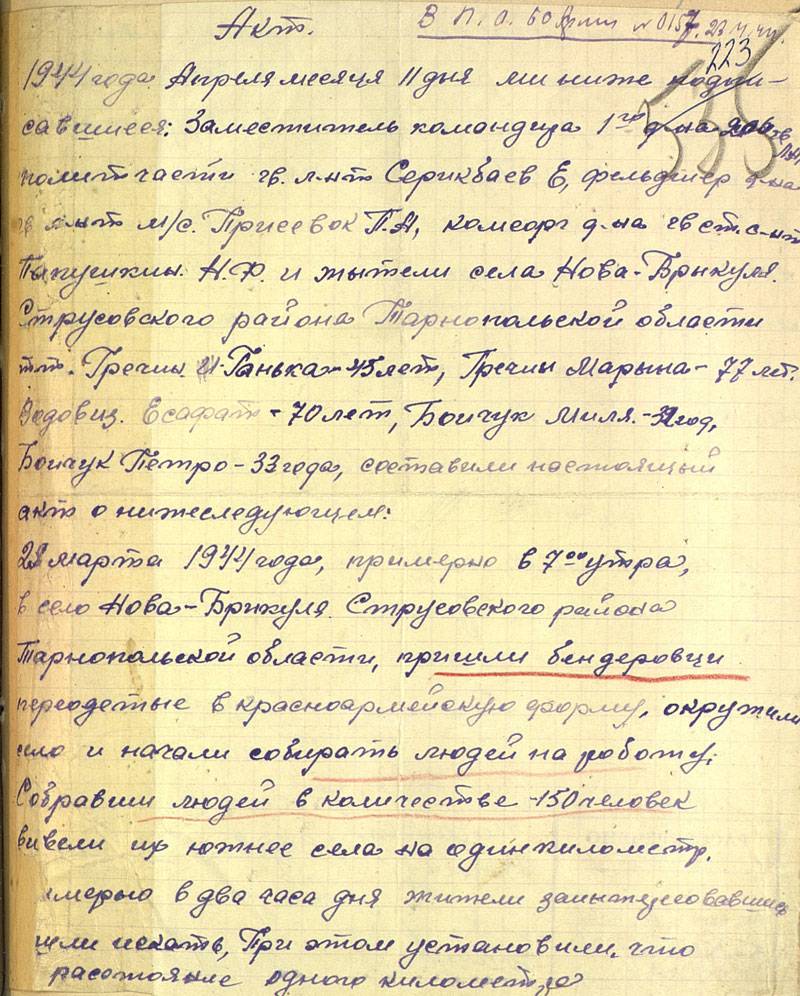 Акт.
В П.О. 60 Армии №0157. 23.4.44.
223
1944 года Апреля месяца 11 дня ми ниже подпи-
савшиеся: Заместитель командира 1го д-на
полит части гв. л-нт Серикбаев Е, фельдшер д-на
гв л-нт м/с. Присевок П.А, комсорг д-на гв ст. с-нт
Папушкин. Н.Ф. и жытели села Нова-Брыкуля.
Струсовского района Тарнопольской области
т.т. Гречин Ганька - 45 лет, Гречин Марына - 77 лет.
Есафат - 70 лет, Бойчук Миля. - год,
Бойчук Петро - 33 года, составили настоящий
акт о нижеследующем:
28 марта 1944 года, примерно в 7 00 утра,
в село Нова-Брикуля. Струсовского района
Тарнопольской области, пришли бендеровци
переодетые в красноармейскую форму, окружили
село и начали собирать людей на роботу.
Собравши людей в количестве -150 человек
вивели их южнее села на один километр.
имерно в два часа дня жители заинтересовавшись
шли искать, При этом установили, что
расстояние одного километра